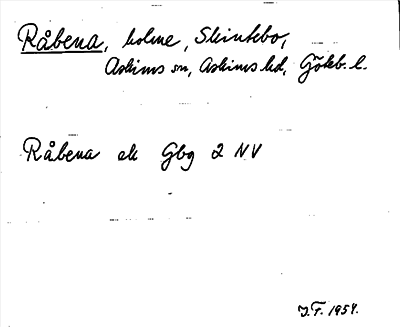 Råbena, holme, Skintebo,
Askims sn, Askims hd, Göteb. l.
Råbena ek Gbg 2 NV
J.F. 1954.